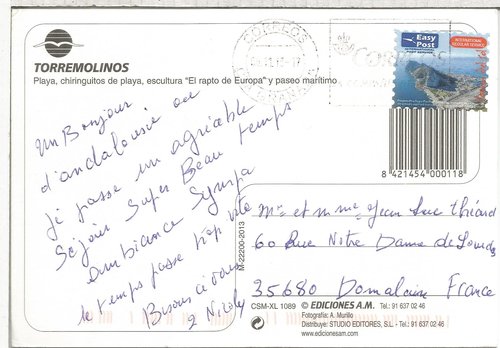 TORREMOLINOS
Playa, chiringuitos de playa, escultura "El rapto de Europa" y paseo marítimo
CORREOS
Easy Post
INTERNATIONAL REGULAR SERVICE
8 421454 000118
un Bonjour
d'andalousie ou
je passe un agréable
Séjour Super Beau temps
ambiance Sympa
le temps passe trop vite
Bisous à vous
2 Nicole
M-22200-2013
Mr et mme Jean Luc Thiard
60 Rue Notre Dame de Lourdes
35680 Domalain France
CSM-XL 1089 © EDICIONES A.M. Tel.: 91 637 02 46
Fotografía: A. Murillo
Distribuye: STUDIO EDITORES, S.L. - Tel.: 91 637 02 46
www.edicionesam.com